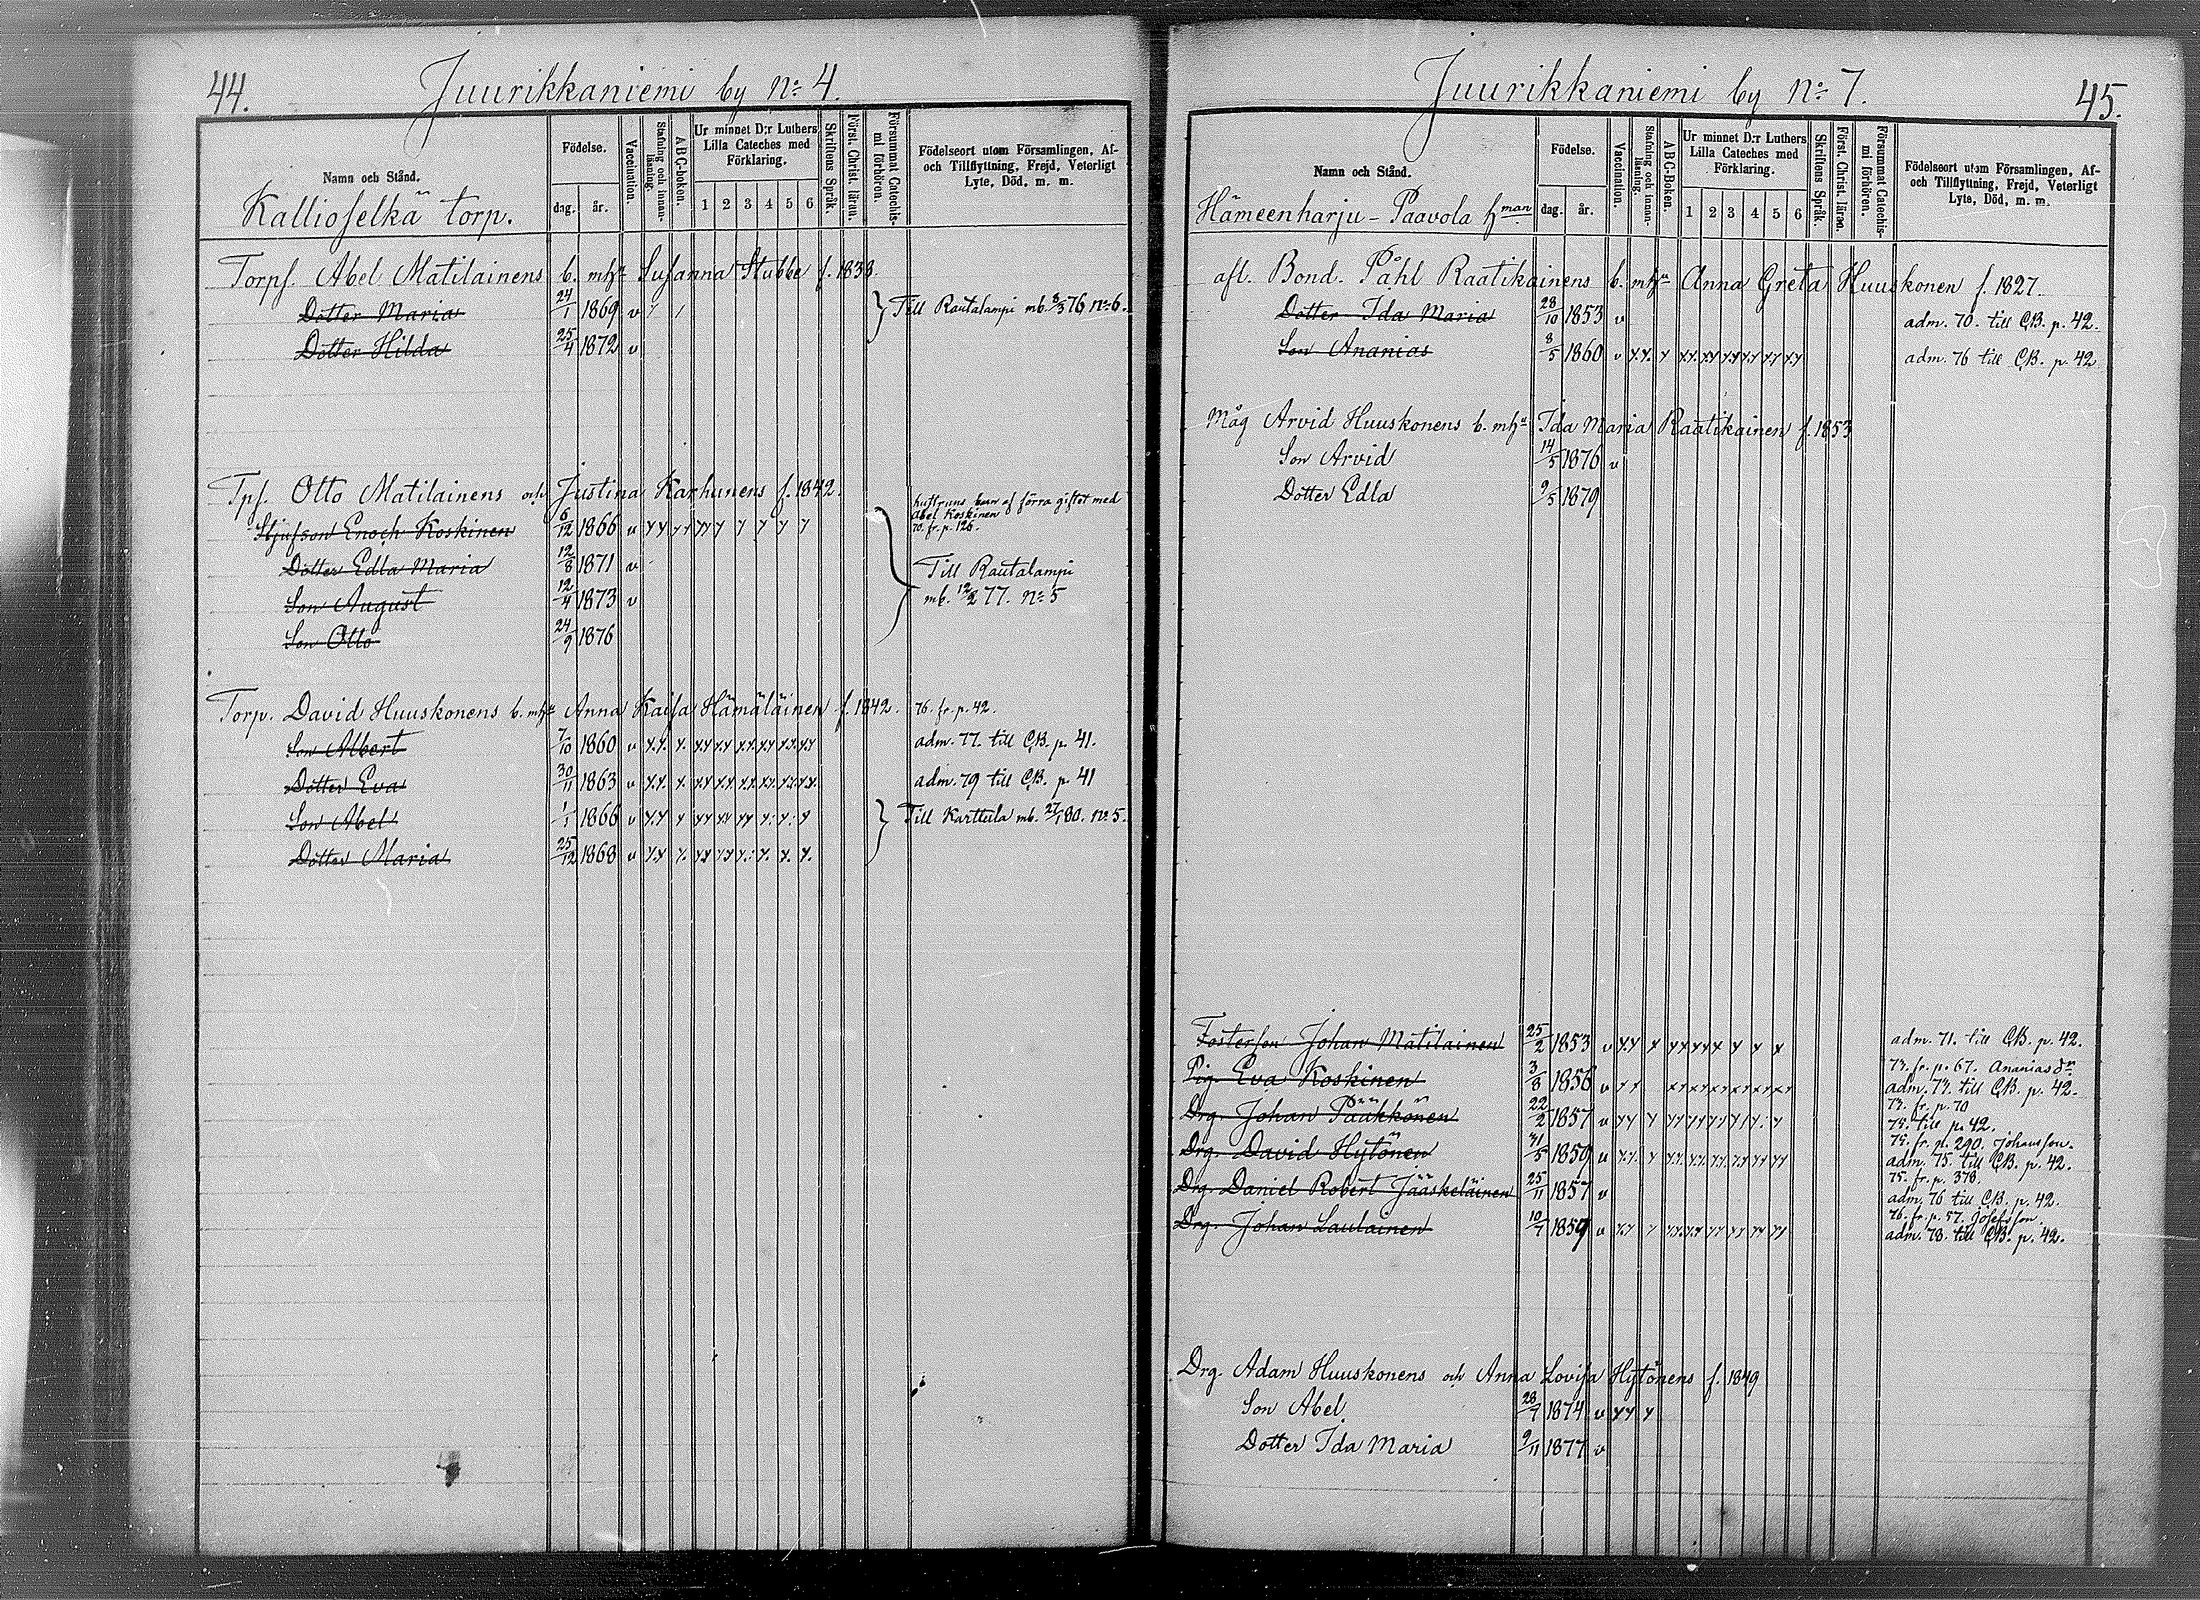 44.
Juurikkaniemi by N:o 4.
Namn och Stånd.
Födelse.
dag.
år.
Vaccination.
Stafning och innanläsning.
ABC-boken.
Ur minnet D:r Luthers
Lilla Cateches med
Förklaring.
1 2 3 4 5 6
Skriftens Språk.
Först. Christ. läran.
Försummat Catechismi förhören.
Födelseort utom Församlingen, Af-
och Tillflyttning, Frejd, Veterligt
Lyte, Död, m. m.
Kallioselkä torp.
Torps. Abel Matilainens b. mhu Susanna Stubbe f. 1838.
Dotter Maria 24/1 1869 v / / } Till Rautalampi mb. 8/3 76 N:o 6.
Dotter Hilda 25/4 1872 v
Tps. Otto Matilainens och Justina Karhunens f. 1842.
hustruns barn af förra giftet med
Abel Koskinen
70. fr. p. 126.
Stjufson Enoch Koskinen 6/12 1866 v
Dotter Edla Maria 12/8 1871 v
Till Rautalampi
Son August 12/4 1873 v
mb. 12/2 77. N:o 5
Son Otto 24/9 1876
Torp. David Huuskonens b. mhu Anna Kaisa Hämäläinen f. 1842. 76. fr. p. 42.
Son Albert 7/10 1860 v adm. 77. till C.B. p. 41.
Dotter Eva 30/11 1863 v adm. 79 till C.B. p. 41
Son Abel 1/1 1866 v } Till Karttula mb. 27/1 80. N:o 5.
Dotter Maria 25/12 1868 v
Juurikkaniemi by N:o 7.
45.
Namn och Stånd.
Födelse.
dag.
år.
Vaccination.
Stafning och innanläsning.
ABC-Boken.
Ur minnet D:r Luthers
Lilla Cateches med
Förklaring.
1 2 3 4 5 6
Skriftens Språk.
Först. Christ. läran.
Försummat Catechismi förhören.
Födelseort utom Församlingen, Af-
och Tillflyttning, Frejd, Veterligt
Lyte, Död, m. m.
Hämeenharju - Paavola hman
afl. Bond. Påhl Raatikainens b. mhu Anna Greta Huuskonen f. 1827.
Dotter Ida Maria 28/10 1853 v adm. 70. till C.B. p. 42.
Son Ananias 8/5 1860 v adm. 76 till C.B. p. 42
Måg Arvid Huuskonens b. mhu Ida Maria Raatikainen f. 1853
Son Arvid 14/5 1876 v
Dotter Edla 9/5 1879
Fosterson Johan Matilainen 25/2 1853 v adm. 71. till C.B. p. 42.
73. fr. p. 67. Ananias dr
Pig. Eva Koskinen 3/8 1856 v adm. 73. till C.B. p. 42.
73. fr. p. 70
Drg. Johan Pääkkönen 22/2 1857 v 75. till p. 42.
75. fr. p. 290. Johansson.
Drg. David Hytönen 31/5 1859 v adm. 75. till C.B. p. 42.
75. fr. p. 378.
Drg. Daniel Robert Jääskeläinen 25/11 1857 v adm. 76 till C.B. p. 42.
76. fr. p. 57. Josefsson.
Drg. Johan Laulainen 10/7 1859 v adm. 78. till C.B. p. 42.
Drg. Adam Huuskonens och Anna Lovisa Hytönens f. 1849
Son Abel 28/7 1874 v
Dotter Ida Maria 9/11 1877 v